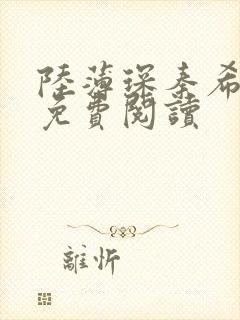 陸薄琛秦希
免費閱讀
離忻